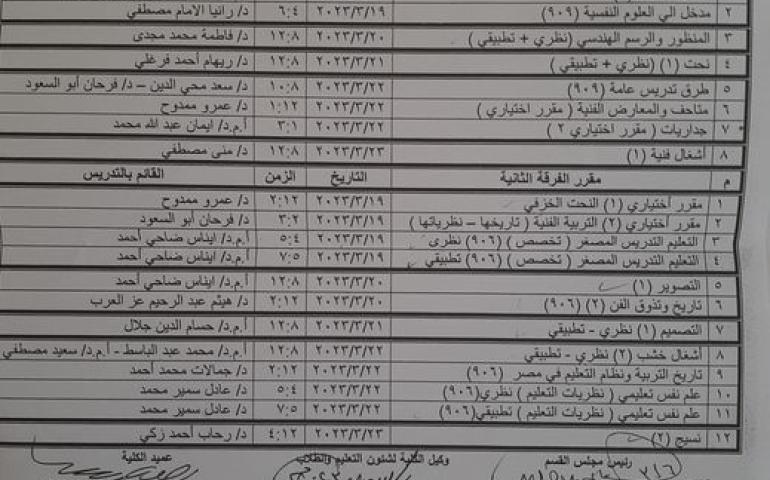 ٢ مدخل الي العلوم النفسية (٩٠٩) ٢٠٢٣/٣/١٩ ٦:٤ د/ رانيا الامام مصطفي
٣ المنظور والرسم الهندسي (نظري + تطبيقي) ٢٠٢٣/٣/٢٠ ١٢:٨ د/ فاطمة محمد مجدى
٤ نحت (١) (نظري + تطبيقي ) ٢٠٢٣/٣/٢١ ١٢:٨ د/ ريهام أحمد فرغلي
٥ طرق تدريس عامة (٩٠٩) ٢٠٢٣/٣/٢٢ ١٠:٨ د/ سعد محي الدين – د/ فرحان أبو السعود
٦ متاحف والمعارض الفنية ( مقرر اختياري ) ٢٠٢٣/٣/٢٢ ١:١٢ د/ عمرو ممدوح
٧ جداريات ( مقرر اختياري ٢ ) ٢٠٢٣/٣/٢٢ ٣:١ أ.م.د/ ايمان عبد الله محمد
٨ أشغال فنية (١) ٢٠٢٣/٣/٢٣ ١٢:٨ د/ منى مصطفي
م مقرر الفرقة الثانية التاريخ الزمن القائم بالتدريس
١ مقرر أختياري (١) النحت الخزفي ٢٠٢٣/٣/١٩ ٢:١٢ د/ عمرو ممدوح
٢ مقرر أختياري (٢) التربية الفنية ( تاريخها – نظرياتها ) ٢٠٢٣/٣/١٩ ٣:٢ د/ فرحان أبو السعود
٣ التعليم التدريس المصغر ( تخصص ) (٩٠٦) نظرى ٢٠٢٣/٣/١٩ ٥:٤ أ.م.د/ ايناس ضاحي أحمد
٤ التعليم التدريس المصغر ( تخصص ) (٩٠٦) تطبيقي ٢٠٢٣/٣/١٩ ٧:٥ أ.م.د/ ايناس ضاحي أحمد
٥ التصوير (١) ٢٠٢٣/٣/٢٠ ١٢:٨ أ.م.د/ ايناس ضاحي أحمد
٦ تاريخ وتذوق الفن (٢) (٩٠٦) ٢٠٢٣/٣/٢٠ ٢:١٢ د/ هيثم عبد الرحيم عز العرب
٧ التصميم (١) نظري - تطبيقي ٢٠٢٣/٣/٢١ ١٢:٨ أ.م.د/ حسام الدين جلال
٨ أشغال خشب (٢) نظري - تطبيقي ٢٠٢٣/٣/٢٢ ١٢:٨ أ.م.د/ محمد عبد الباسط - أ.م.د/ سعيد مصطفي
٩ تاريخ التربية ونظام التعليم في مصر (٩٠٦) ٢٠٢٣/٣/٢٢ ٢:١٢ د/ جمالات محمد أحمد
١٠ علم نفس تعليمي ( نظريات التعليم ) نظري(٩٠٦) ٢٠٢٣/٣/٢٢ ٥:٤ د/ عادل سمير محمد
١١ علم نفس تعليمي ( نظريات التعليم ) تطبيقي(٩٠٦) ٢٠٢٣/٣/٢٢ ٧:٥ د/ عادل سمير محمد
١٢ نسيج (٢) ٢٠٢٣/٣/٢٣ ٤:١٢ د/ رحاب أحمد زكي
رئيس مجلس القسم وكيل الكلية لشئون التعليم والطلاب عميد الكلية